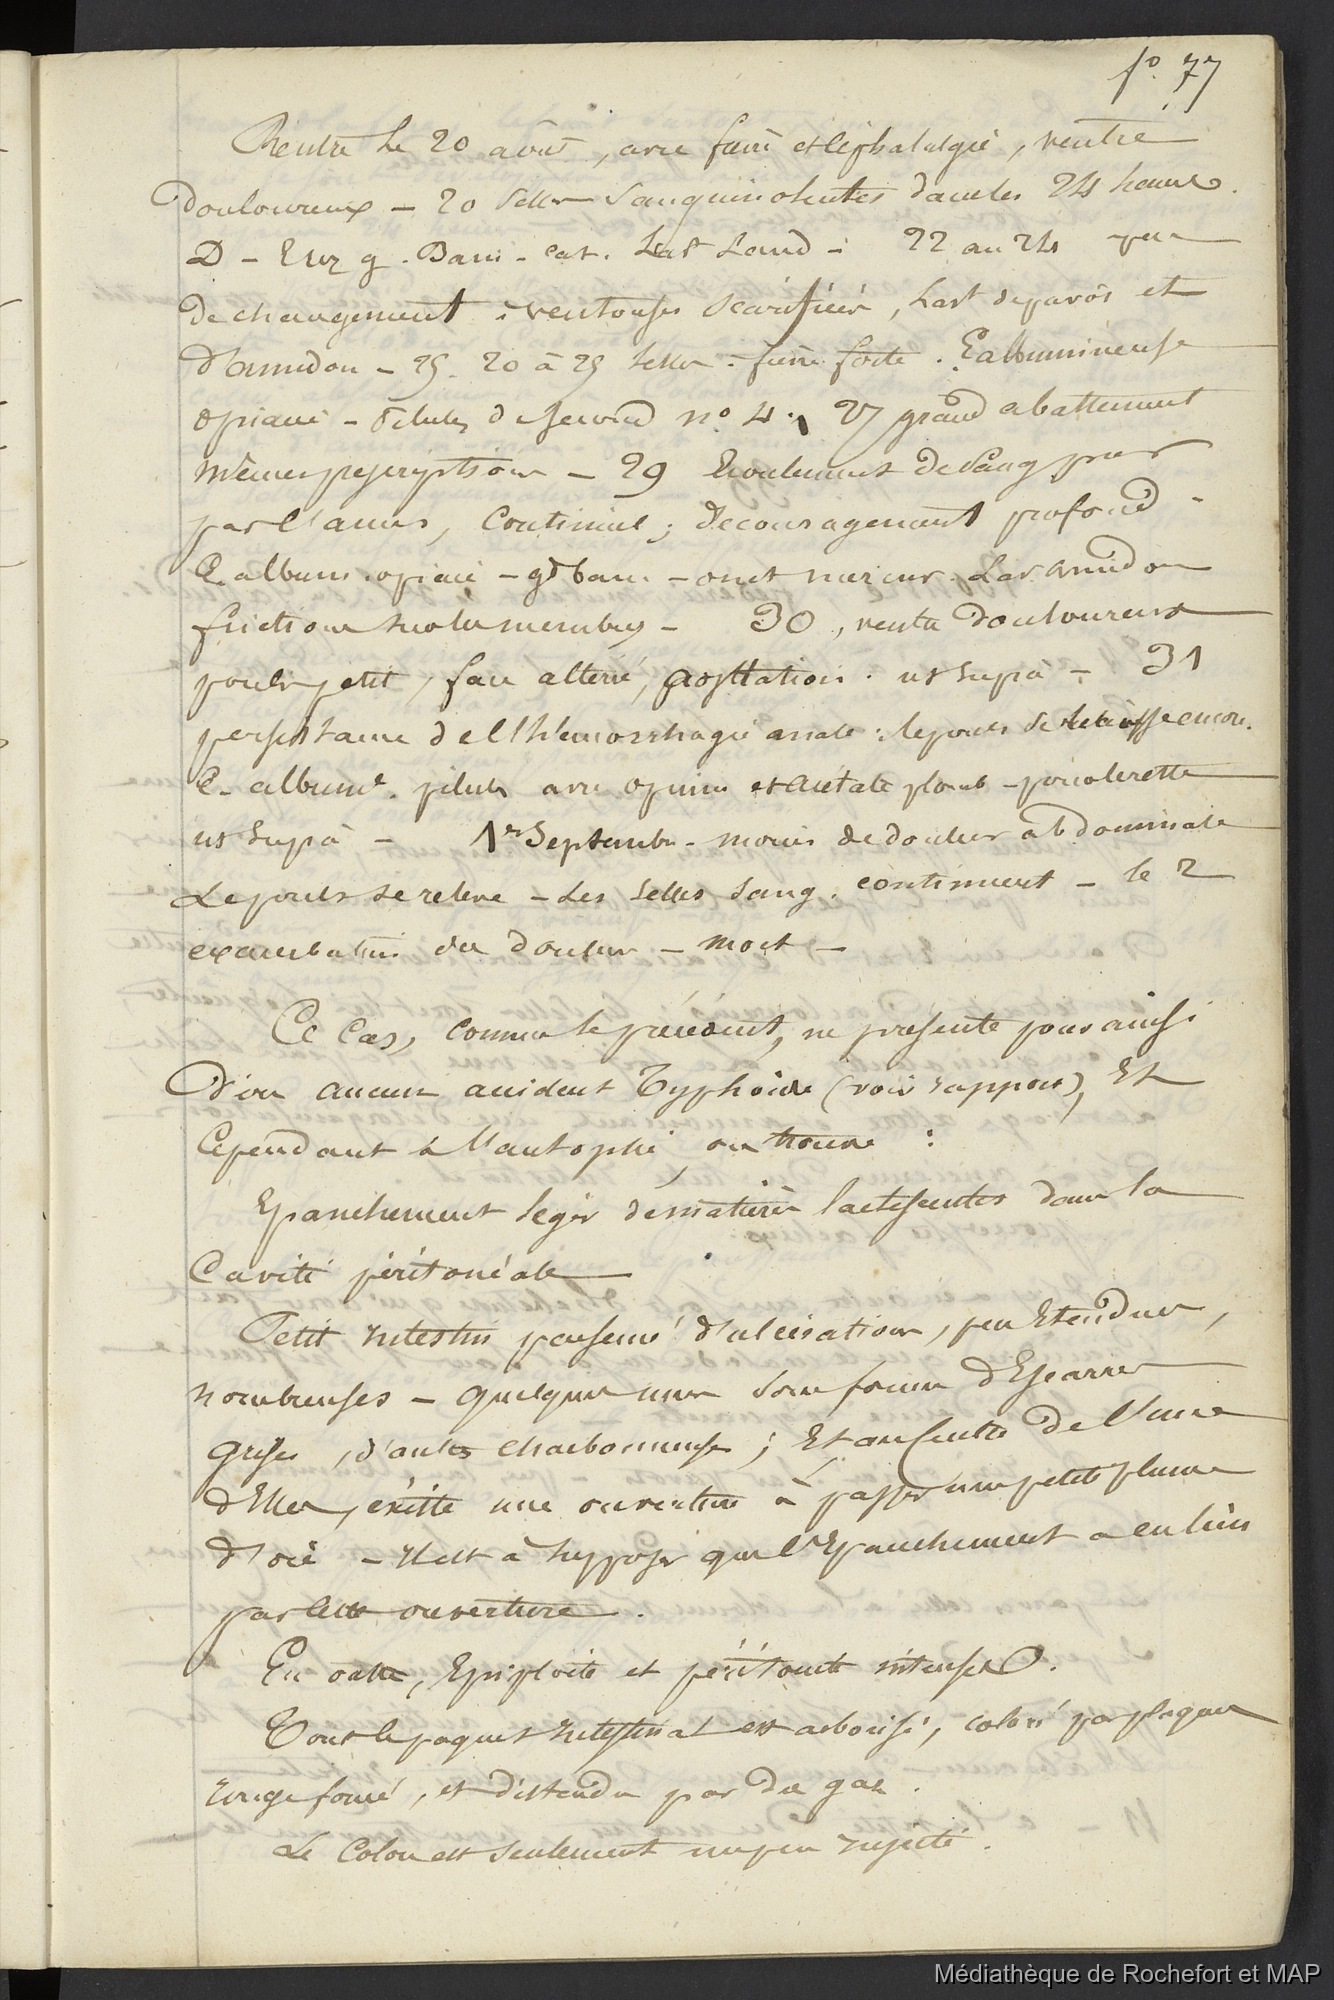 fo. 77
Rentré le 20 août, avec fièvre et céphalalgie, ventre
douloureux – 20 selles sanguinolentes dans les 24 heures.
D – Bain – cat. Laud – 22 au 24 peu
de changement : ventouses scarifiées, Lavt de pavôt et
d'amidon – 25. 20 à 25 selles – fièvre forte. E albumineuse
opiacé – Pilules de Segond no 4. 27 grand abattement
mêmes prescriptions – 29 Ecoulement de sang pur
par l'anus, continuel ; découragement profond –
E. album. opiacé – gd bain – onct mercur. Lav. amidon
frictions sur les membres – 30, ventre douloureux
pouls petit, face altérée, prostration. ut suprà – 31
persistance de l'hémorrhagie anale : le pouls se encore.
E. albume. pilules avec opium et acétate plomb –
ut suprà – 1er Septembre – moins de douleur abdominale
Le pouls se relève – Les selles sang. continuent – le 2
exacerbation des douleurs – mort –
Ce cas, comme le précédent, ne présente pour ainsi
dire aucun accident typhoïde (voir rapport), Et
cependant à l'autopsie, on trouve :
Epanchement léger de matières lactescentes dans la
Cavité péritonéale
Petit intestin parsemé d'ulcérations, peu Etendues,
nombreuses – quelques unes sous forme d'Escarres
grises, d'autres charbonneuses ; Et au centre de l'une
d'Elles, existe une ouverture à passer une petite plume
d'oie – Il est à supposer que l'Epanchement a eu lieu
par cette ouverture.
En outre, Epiploite et péritonite intenses.
Tout le paquet intestinal est arborisé, coloré par plaques
rouge foncé, et distendu par des gaz.
Le Colon est seulement un peu injecté.
Médiathèque de Rochefort et MAP